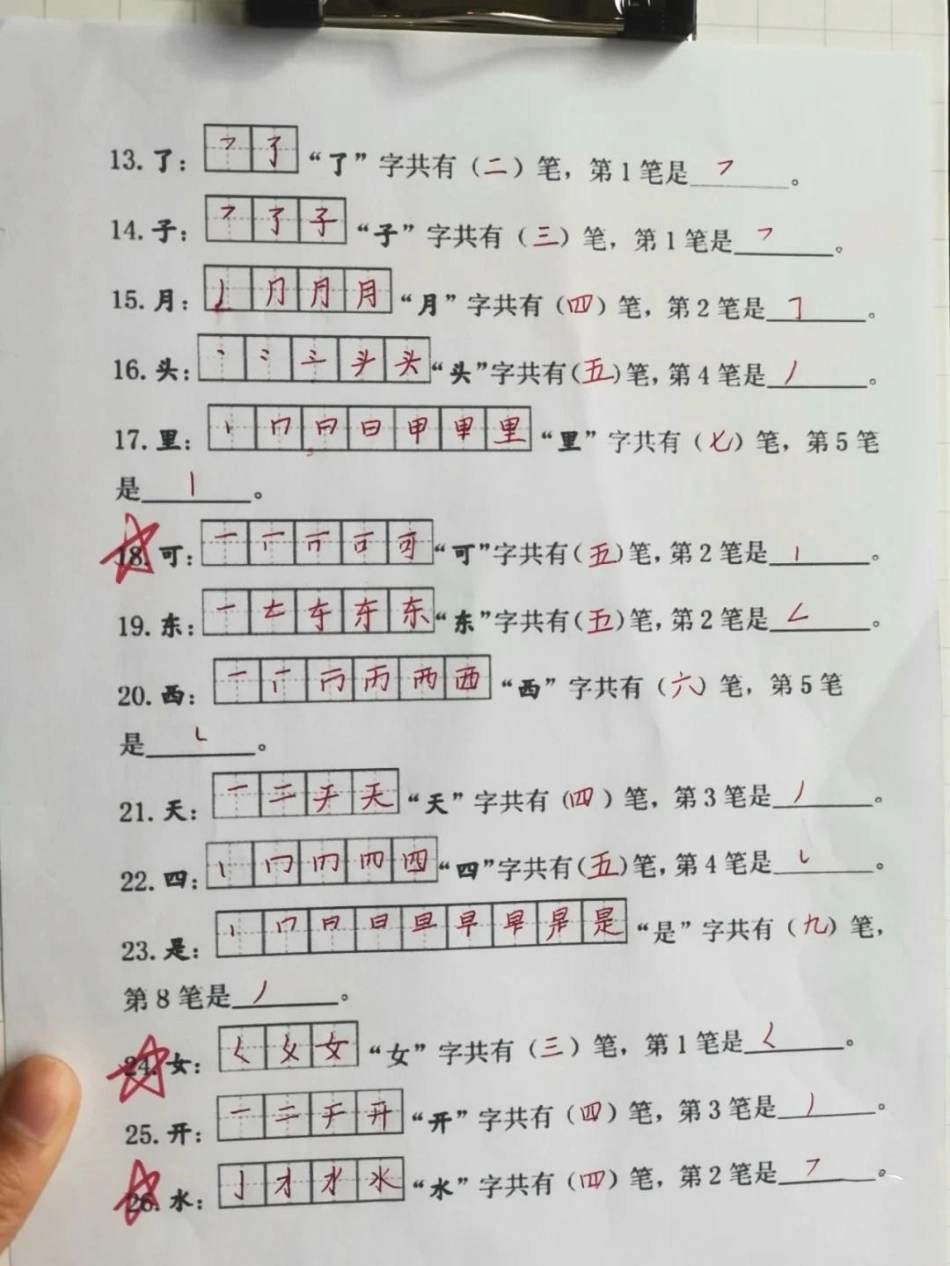 13. 了: 乛 了 “了”字共有（二）笔，第1笔是 乛 。
14. 子: 乛 了 子 “子”字共有（三）笔，第1笔是 乛 。
15. 月: 月 “月”字共有（四）笔，第2笔是 ㇆ 。
16. 头: 丶 头 “头”字共有（五）笔，第4笔是 丿 。
17. 里: 丨 日 甲 里 “里”字共有（七）笔，第5笔
是 丨 。
18. 可: 一 可 “可”字共有（五）笔，第2笔是 丨 。
19. 东: 一 东 “东”字共有（五）笔，第2笔是 ㄥ 。
20. 西: 一 丙 西 “西”字共有（六）笔，第5笔
是 ㇄ 。
21. 天: 一 二 天 “天”字共有（四）笔，第3笔是 丿 。
22. 四: 丨 冂 四 “四”字共有（五）笔，第4笔是 ㇄ 。
23. 是: 丨 冂 日 旦 早 是 “是”字共有（九）笔，
第8笔是 丿 。
24. 女: ㄑ 女 “女”字共有（三）笔，第1笔是 ㄑ 。
25. 开: 一 二 开 “开”字共有（四）笔，第3笔是 丿 。
26. 水: 亅 水 “水”字共有（四）笔，第2笔是 ㇇ 。